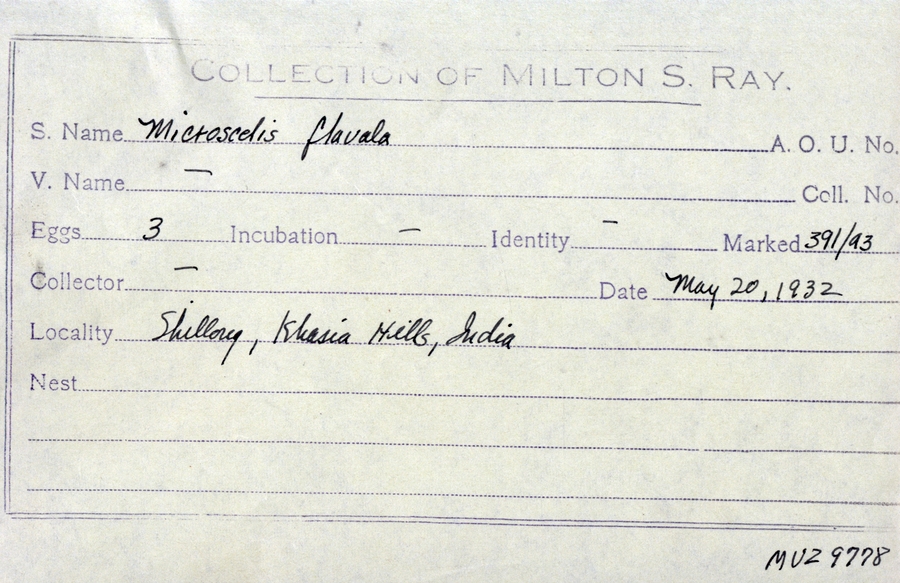 COLLECTION OF MILTON S. RAY.
S. Name Microscelis flavala A. O. U. No.
V. Name — Coll. No.
Eggs 3 Incubation — Identity — Marked 391/93
Collector — Date May 20, 1932
Locality Shillong, Khasia Hills, India
Nest
MVZ 9778